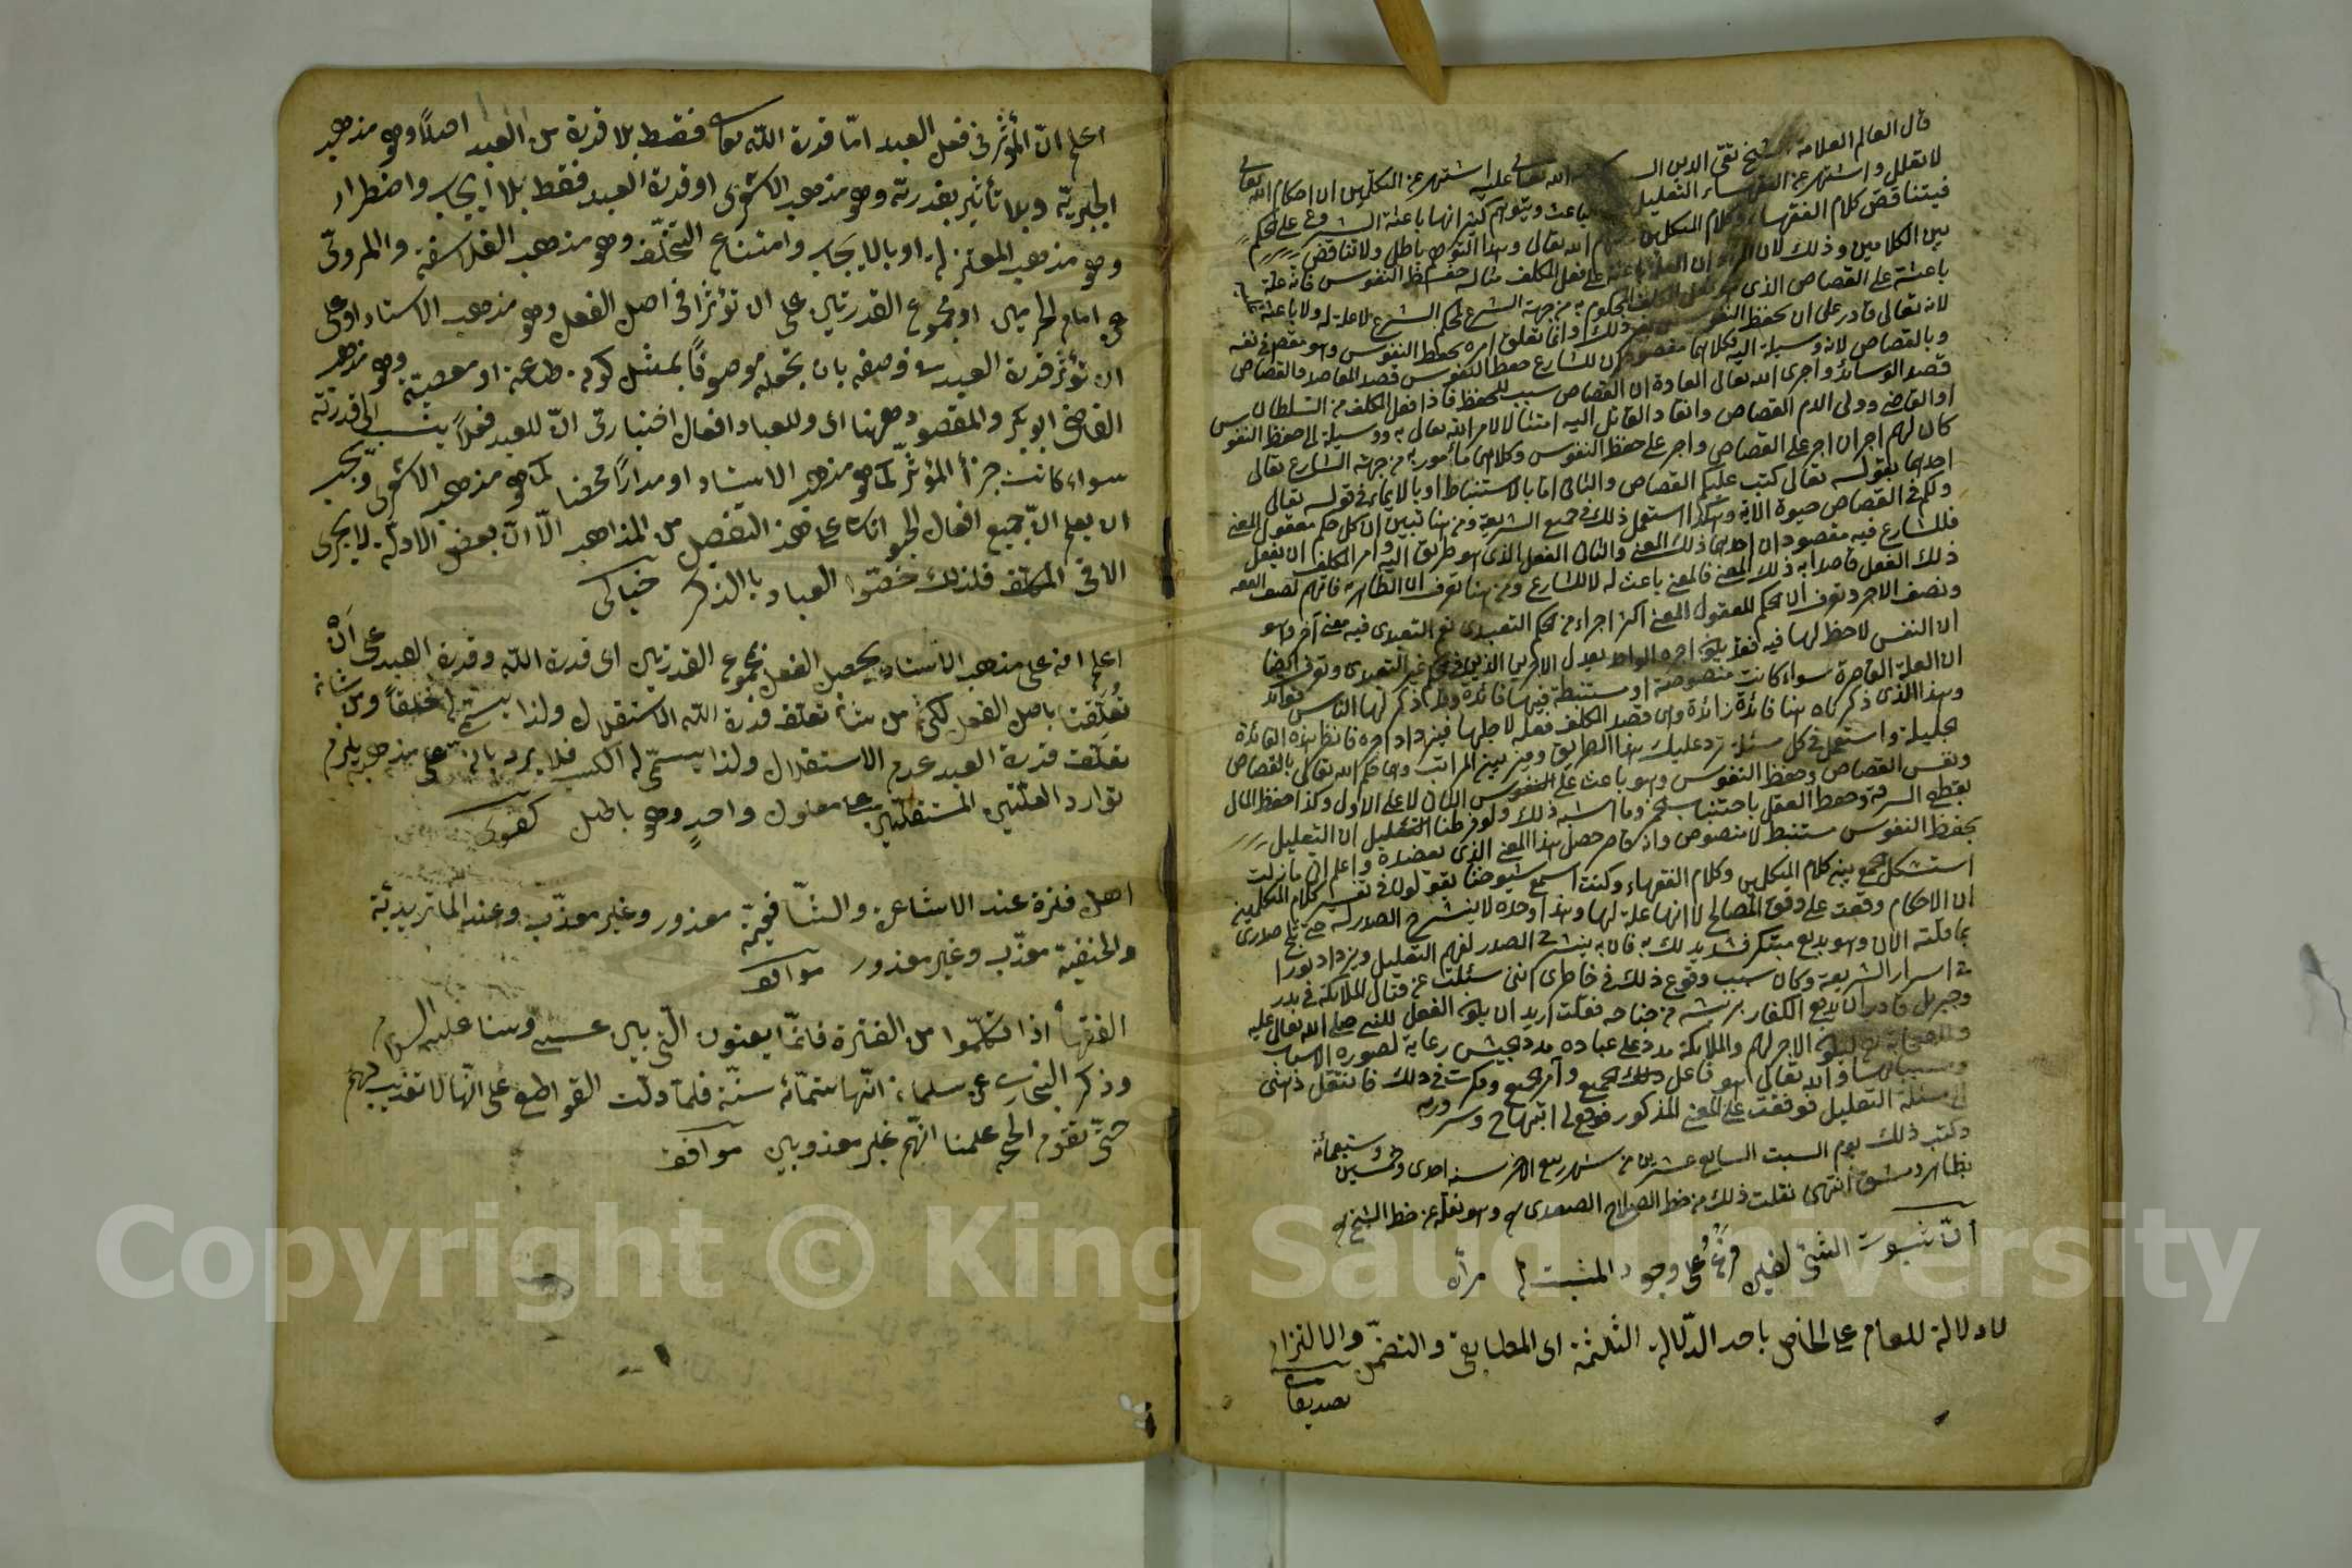 قال العالم العلامة الشيخ تقي الدين الله تعالى عليه اشتهر عن المتكلمين ان احكام الله تعالى
لا تعلل واشتهر عن الفقهاء التعليل باعث ويتوهم كثير انها باعثة الشرع على الحكم
فيتناقض كلام الفقهاء وكلام المتكلمين الله تعالى وهذا التوهم باطل ولا تناقض
بين الكلامين وذلك لان المراد ان العلة باعثة على فعل المكلف مثاله حفظ النفوس فانه علة
باعثة على القصاص الذي هو فعل المكلف المحكوم به من جهة الشرع فحكم الشرع لا علة له ولا باعث عليه
لانه تعالى قادر على ان يحفظ النفوس بغير ذلك وانما تعلق امره بحفظ النفوس وهو مقصود في نفسه
وبالقصاص لانه وسيلة اليه فكلاهما مقصود للشارع حفظ النفوس قصد المقاصد والقصاص
قصد الوسائل واجرى الله تعالى العادة ان القصاص سبب للحفظ فاذا فعل المكلف من السلطان
او القاضي وولي الدم القصاص وانقاد القاتل اليه امتثالا لامر الله تعالى به ووسيلة الى حفظ النفوس
كان لهم اجران اجر على القصاص واجر على حفظ النفوس وكلاهما مأمور به من جهة الشارع تعالى
احدهما بقوله تعالى كتب عليكم القصاص والثاني اما بالاستنباط او بالايماء في قوله تعالى
ولكم في القصاص حيوة الاية وهكذا استعمل ذلك في جميع الشريعة ومن هنا تبين ان كل حكم معقول المعنى
فللشارع فيه مقصودان احدهما ذلك المعنى والثاني الفعل الذي هو طريق اليه وامر المكلف ان يفعل
ذلك الفعل قاصدا به ذلك المعنى فالمعنى باعث له لا للشارع ومن هنا تعرف ان الظاهرية فاتهم نصف الفقه
ونصف الاجر وتعرف ان الحكم المعقول المعنى اكثر اجرا من الحكم التعبدي نعم التعبدي فيه معنى آخر وهو
ان النفس لا حظ لها فيه فقد يكون اجره الواحد يعدل الاجرين الذين في الحكم غير التعبدي وتعرف ايضا
ان العلة القاصرة سواء كانت منصوصة او مستنبطة فيها فائدة وقد ذكر لها الناس فوائد
وهذا الذي ذكرناه هنا فائدة زائدة وهي قصد المكلف فعله لاجلها فيزداد اجره فانظر هذه الفائدة
الجليلة واستعمل في كل مسئلة ترد عليك هذا الطريق وميز بين المراتب وهي حكم الله تعالى بالقصاص
ونفس القصاص وحفظ النفوس وهو باعث على الثاني لا على الاول وكذا حفظ المال
بقطع السرقة وحفظ العقل باجتناب الخمر وما اشبه ذلك ولو فرضنا ان التعليل
بحفظ النفوس مستنبط لا منصوص واذ قاصر حصل هذا المعنى الذي نقصده واعلم اني ما زلت
استشكل الجمع بين كلام المتكلمين وكلام الفقهاء وكنت اسمع شيوخنا يقولون في تفسير كلام المتكلمين
ان الاحكام وقعت على وفق المصالح لا انها علة لها وهذا وحده لا ينشرح الصدر له حتى ثلج صدري
بما قلته الان وهو بديع مبتكر فشد يديك به فان به ينشرح الصدر لفهم التعليل ويزداد نورا
في اسرار الشريعة وكان سبب وقوع ذلك في خاطري انني سئلت عن قتال الملائكة في بدر
وجبريل قادر ان يدفع الكفار بريشة من جناحه فقلت اريد ان يكون الفعل للنبي صلى الله تعالى عليه
وللصحابة ليكون الاجر لهم والملائكة مدد على عادة مدد الجيش رعاية لصورة الاسباب
والله تعالى هو فاعل ذلك الجميع وآمر الجميع وفكرت في ذلك فانتقل ذهني
الى مسئلة التعليل فوقفت على المعنى المذكور فوقع لي ابتهاج وسرور به
وكتب ذلك يوم السبت السابع عشرين من شهر ربيع الآخر سنة احدى وخمسين وسبعمائة
بظاهر دمشق انتهى نقلت ذلك من خط الصلاح الصفدي وهو نقله عن خط الشيخ
ان ثبوت الشئ لشئ فرع على وجود المثبت له مرآة
لا دلالة للعام على الخاص باحد الدلالة الثلثة اي المطابقة والتضمن والالتزام
تصديقات
اعلم ان المؤثر في فعل العبد اما قدرة الله تعالى فقط بلا قدرة من العبد اصلا وهو مذهب
الجبرية وبلا تأثير بقدرته وهو مذهب الاشعرى او قدرة العبد فقط بلا ايجاب واضطرار
وهو مذهب المعتزلة او بالايجاب وامتناع التخلف وهو مذهب الفلاسفة والمروىّ
عن امام الحرمين او مجموع القدرتين على ان تؤثرا في اصل الفعل وهو مذهب الاستاد او على
ان تؤثر قدرة العبد في وصفه بان يجعله موصوفا بمثل كونه طاعة او معصية وهو مذهب
القاضى ابو بكر والمقصود ههنا اى وللعباد افعال اختيارية ان للعبد فعلا ينسب الى قدرته
سواء كانت جزأ المؤثر كما هو مذهب الاستاد او مدارا محضا كما هو مذهب الاشعرى ويجب
ان يعلم ان جميع افعال الحيوانات على هذا التفصيل من المذاهب الا ان بعض الادلة لا يجرى
الا في المكلف فلذلك خصوا العباد بالذكر خيالى
اعلم انه على مذهب الاستاد يحصل الفعل بمجموع القدرتين اى قدرة الله وقدرة العبد على ان
تعلقتا باصل الفعل لكن من شأن تعلق قدرة الله الاستقلال ولذا يسمى له خلقا ومن شان
تعلقت قدرة العبد عدم الاستقلال ولذا يسمى له الكسب فلا يرد بانه على مذهبه يلزم
توارد العلتين المستقلتين على معلول واحد وهو باطل كفوى
اهل فترة عند الاشاعرة والشافعية معذور وغير معذب وعند الماتريدية
والحنفية معذب وغير معذور مواقف
الفقهأ اذا تكلموا من الفترة فانما يعنون التى بين عيسى وبيننا عليه السلام
وذكر البخارى عن سلمان انها ستمائة سنة فلما دلت القواطع على انها لا تعذيب لهم
حتى تقوم الحجة علمنا انهم غير معذوبين مواقف
Copyright © King Saud University